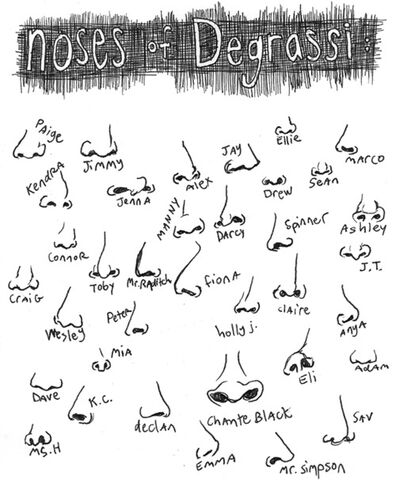 noses of Degrassi:
Paige
Jimmy
Alex
Jay
Ellie
Marco
Kendra
Jenna
Drew
Sean
Manny
Darcy
Spinner
Ashley
Connor
Toby
Mr. Raditch
Fiona
J.T.
Craig
Wesley
Peter
holly j.
Claire
Anya
Mia
Eli
Adam
Dave
K.C.
declan
Chante Black
Sav
Ms. H
Emma
Mr. Simpson